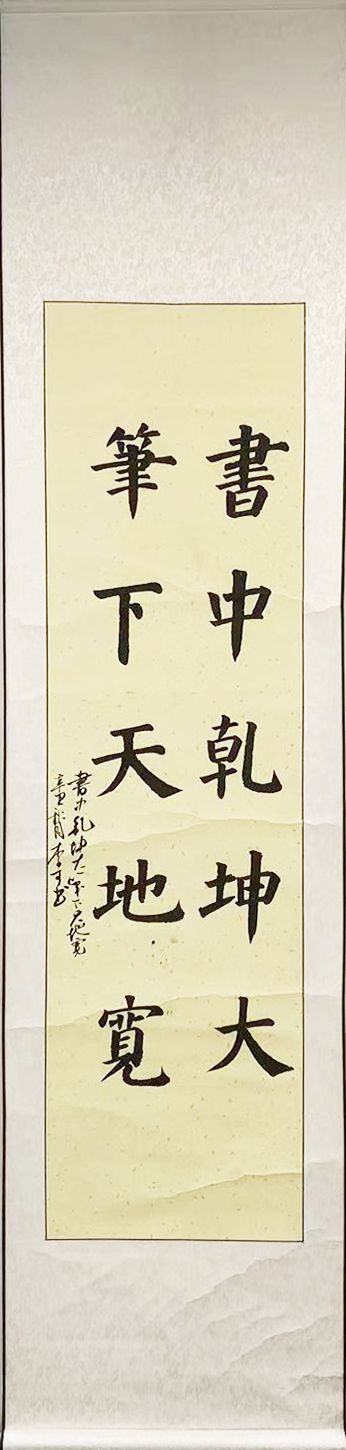 書中乾坤大
筆下天地寬
書中乾坤大筆下天地寬
辛丑